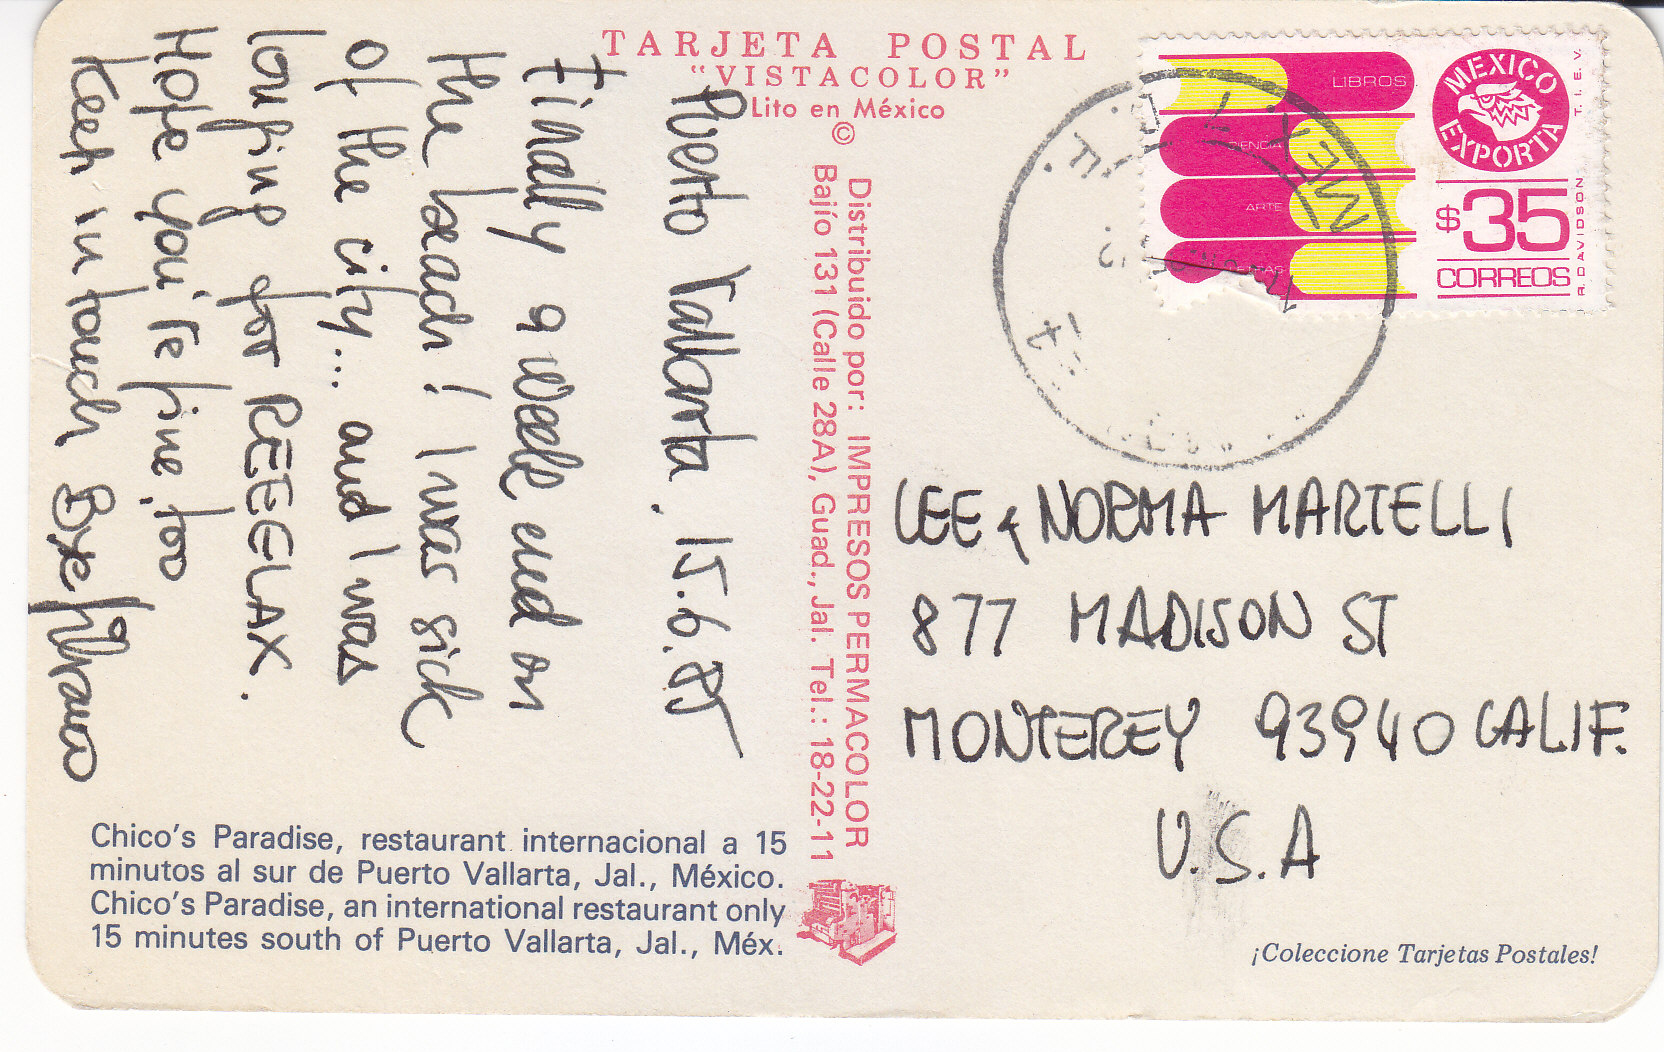 TARJETA POSTAL
"VISTACOLOR"
Lito en México
©
Distribuido por: IMPRESOS PERMACOLOR
Bajío 131 (Calle 28A), Guad., Jal. Tel.: 18-22-11
Puerto Vallarta, 15.6.85
Finally a week end on
the beach! I was sick
of the city... and I was
louking for REEELAX.
Hope you're fine, too
Keep in touch Bye
Chico's Paradise, restaurant internacional a 15
minutos al sur de Puerto Vallarta, Jal., México.
Chico's Paradise, an international restaurant only
15 minutes south of Puerto Vallarta, Jal., Méx.
LIBROS
CIENCIA
ARTE
MEXICO
EXPORTA
$35
CORREOS
T. I. E. V.
R. DAVIDSON
MEX
D. F.
LEE & NORMA MARTELLI
877 MADISON ST
MONTEREY 93940 CALIF.
U.S.A
¡Coleccione Tarjetas Postales!